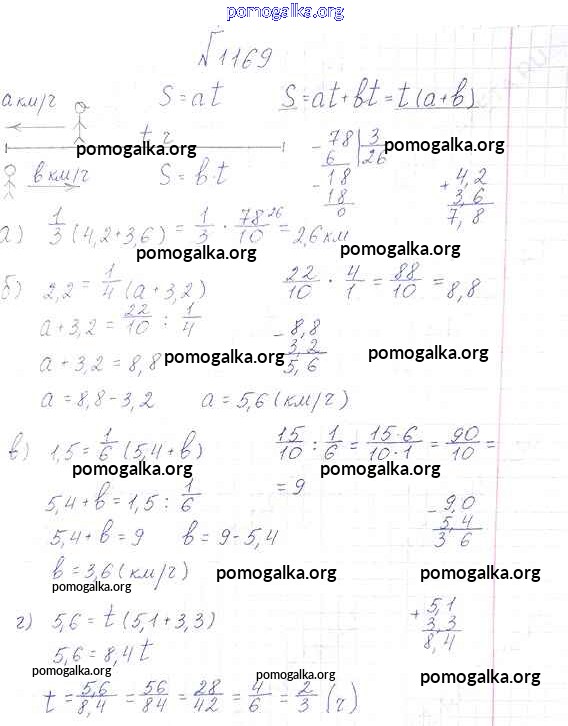 pomogalka.org
√1169
a км/ч S = at S = at + bt = t(a+b)
t ч
pomogalka.org
в км/ч S = b·t
- 78 | 3
6 26
- 18
18
0
pomogalka.org
+ 4,2
3,6
7,8
а) 1/3 (4,2+3,6) = 1/3 · 78/10 26 = 2,6 км
pomogalka.org pomogalka.org
б) 2,2 = 1/4 (a+3,2) 22/10 · 4/1 = 88/10 = 8,8
a+3,2 = 22/10 : 1/4
a+3,2 = 8,8 pomogalka.org
- 8,8
3,2
5,6
pomogalka.org
a = 8,8-3,2 a = 5,6 (км/ч)
в) 1,5 = 1/6 (5,4+b) 15/10 : 1/6 = 15·6/10·1 = 90/10 =
pomogalka.org pomogalka.org
= 9
5,4+b = 1,5 : 1/6
5,4+b = 9 b = 9-5,4
- 9,0
5,4
3 6
b = 3,6 (км/ч) pomogalka.org pomogalka.org
pomogalka.org
г) 5,6 = t(5,1+3,3)
5,6 = 8,4t
+ 5,1
3,3
8,4
pomogalka.org pomogalka.org pomogalka.org
t = 5,6/8,4 = 56/84 = 28/42 = 4/6 = 2/3 (ч)